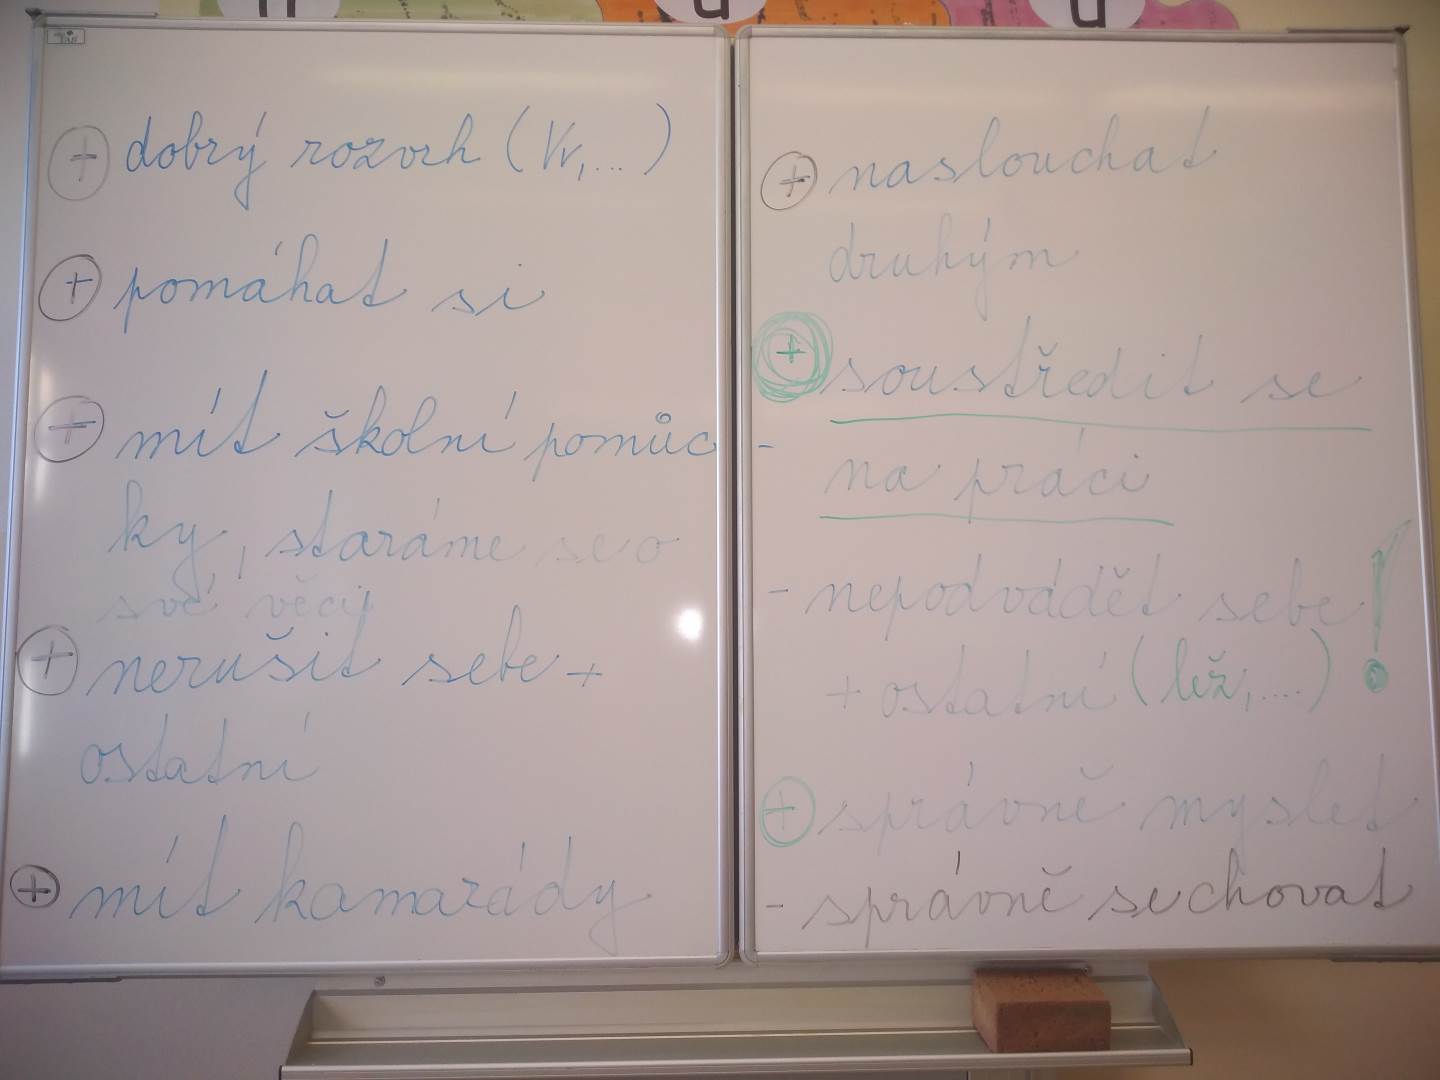 + dobrý rozvrh (Vv,...)
+ pomáhat si
+ mít školní pomůc -
ky, staráme se o
své věci
+ nerušit sebe +
ostatní
+ mít kamarády
+ naslouchat
druhým
+ soustředit se
na práci
- nepodvádět sebe !
+ ostatní (lež,....)
+ správně myslet
- správně se chovat